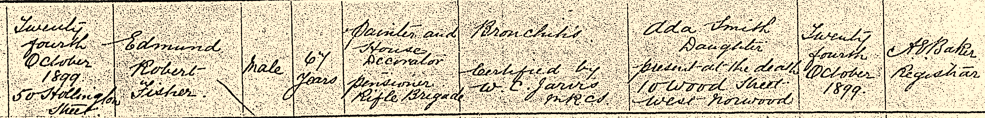 Twenty
fourth
October
1899.
50 Hollington
Street.
Edmund
Robert
Fisher.
Male
67
Years
Painter and
House
Decorator
pensioner
Rifle Brigade
Bronchitis.
Certified by
W. C. Jarvis
MRCS.
Ada Smith
Daughter
present at the death
10 Wood Street
West Norwood
Twenty
fourth
October
1899.
A E Baker
Registrar